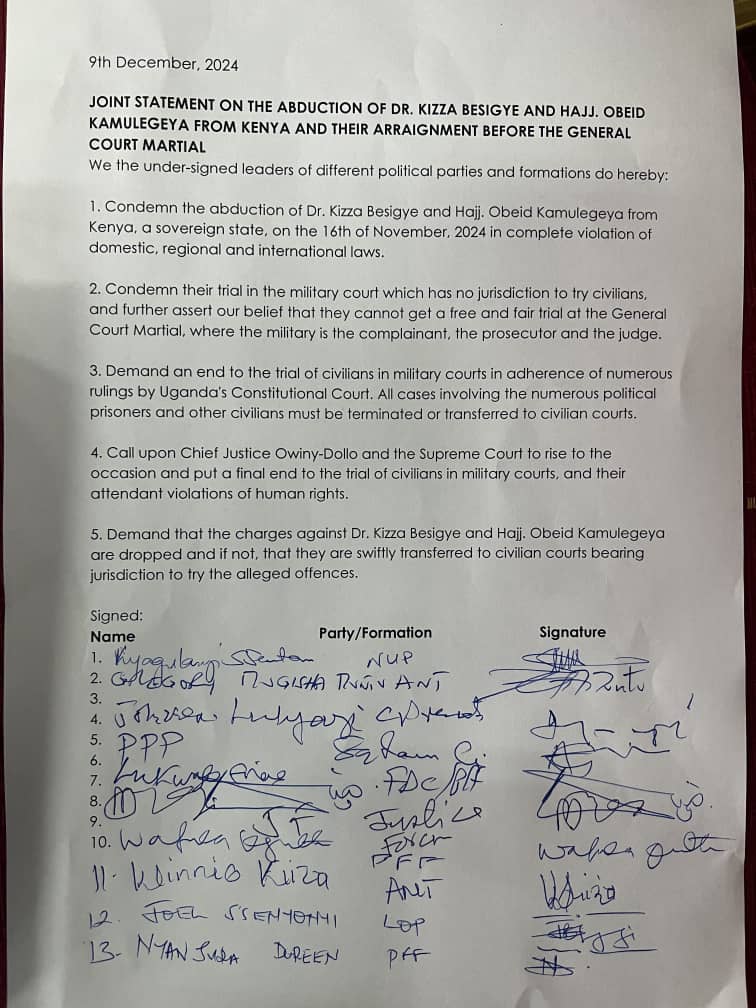 9th December, 2024
JOINT STATEMENT ON THE ABDUCTION OF DR. KIZZA BESIGYE AND HAJJ. OBEID
KAMULEGEYA FROM KENYA AND THEIR ARRAIGNMENT BEFORE THE GENERAL
COURT MARTIAL
We the under-signed leaders of different political parties and formations do hereby:
1. Condemn the abduction of Dr. Kizza Besigye and Hajj. Obeid Kamulegeya from
Kenya, a sovereign state, on the 16th of November, 2024 in complete violation of
domestic, regional and international laws.
2. Condemn their trial in the military court which has no jurisdiction to try civilians,
and further assert our belief that they cannot get a free and fair trial at the General
Court Martial, where the military is the complainant, the prosecutor and the judge.
3. Demand an end to the trial of civilians in military courts in adherence of numerous
rulings by Uganda's Constitutional Court. All cases involving the numerous political
prisoners and other civilians must be terminated or transferred to civilian courts.
4. Call upon Chief Justice Owiny-Dollo and the Supreme Court to rise to the
occasion and put a final end to the trial of civilians in military courts, and their
attendant violations of human rights.
5. Demand that the charges against Dr. Kizza Besigye and Hajj. Obeid Kamulegeya
are dropped and if not, that they are swiftly transferred to civilian courts bearing
jurisdiction to try the alleged offences.
Signed:
Name Party/Formation Signature
1. Kyagulanyi NUP
2. GREGORY MUGISHA ANT
3.
4.
5. PPP
6.
7. FDC
8.
9. Justice
10. Wafula PFF
11. Winnie Kiiza ANT
12. JOEL SSENYONYI LOP
13- DOREEN PFF